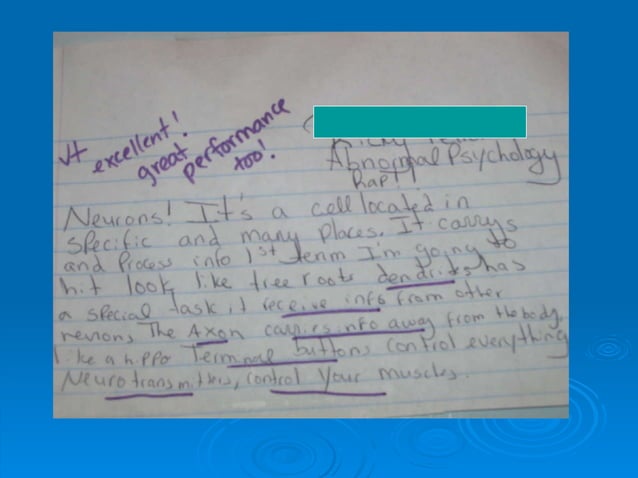 √+ excellent!
great
performance
too!
Abnormal Psychology
Rap!!
Neurons! It's a cell located in
specific and many places. It carrys
and Process info 1st term I'm going to
hit look like tree roots dendrits has
a special task it receive info from other
The Axon carries info away from the body,
like a hippo Terminal buttons control everything
Neurotransmitters, control your muscles.